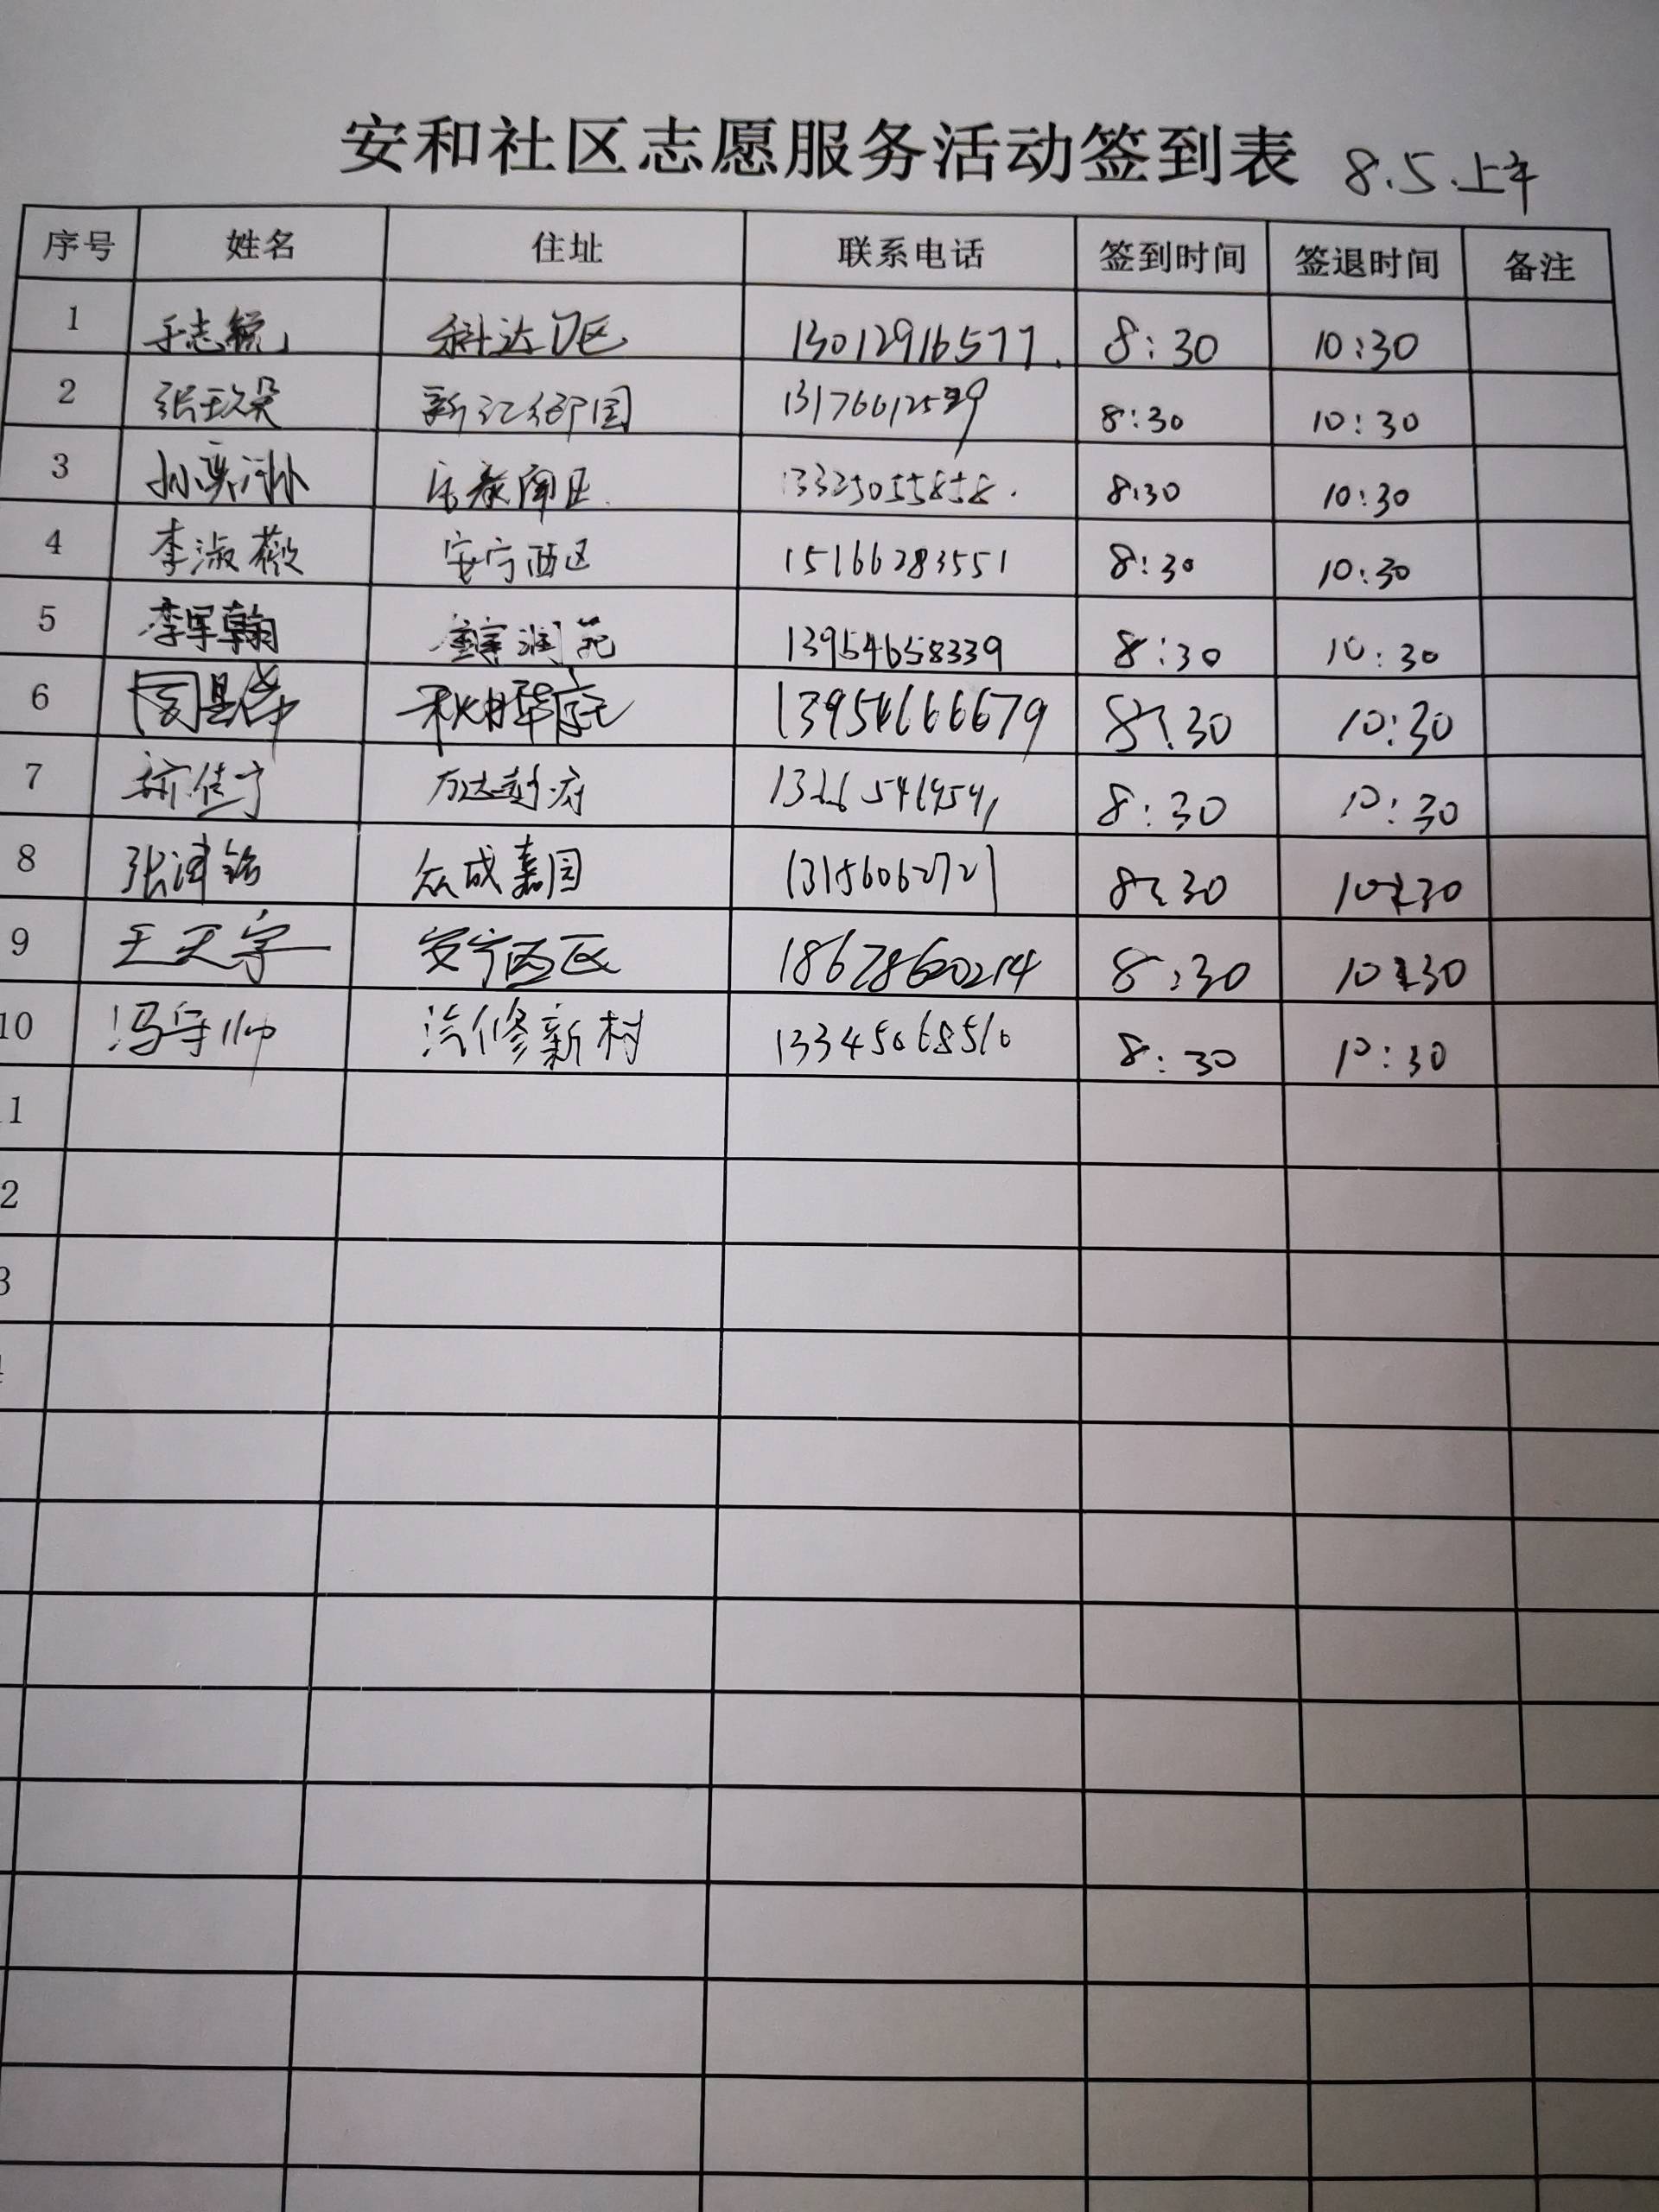 安和社区志愿服务活动签到表 8.5.上午
序号 姓名 住址 联系电话 签到时间 签退时间 备注
1 于志锐 科达D区 13012916577. 8:30 10:30
2 张玉朵 131766125 8:30 10:30
3 孙奕 南区. 13325055858. 8:30 10:30
4 李淑薇 安宁西区 15166283551 8:30 10:30
5 李军翰 润苑 13954658339 8:30 10:30
6 周昊 13954666679 8:30 10:30
7 佳宁 8:30 10:30
8 张津铭 众成嘉园 13156062721 8:30 10:30
9 王天宇 安宁西区 18678620214 8:30 10:30
10 冯宇帅 汽修新村 13345068510 8:30 10:30
1
2
3